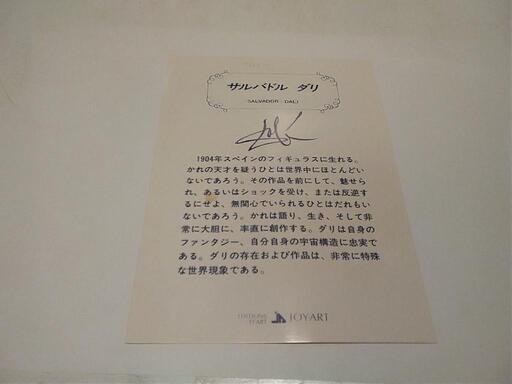 サルバドル ダリ
SALVADOR DALI
1904年スペインのフィギュラスに生れる。
かれの天才を疑うひとは世界中にほとんどい
ないであろう。その作品を前にして、魅せら
れ、あるいはショックを受け、または反逆す
るにせよ、無関心でいられるひとはだれもい
ないであろう。かれは語り、生き、そして非
常に大胆に、率直に創作する。ダリは自身の
ファンタジー、自分自身の宇宙構造に忠実で
ある。ダリの存在および作品は、非常に特殊
な世界現象である。
EDITIONS
D'ART
JOYART